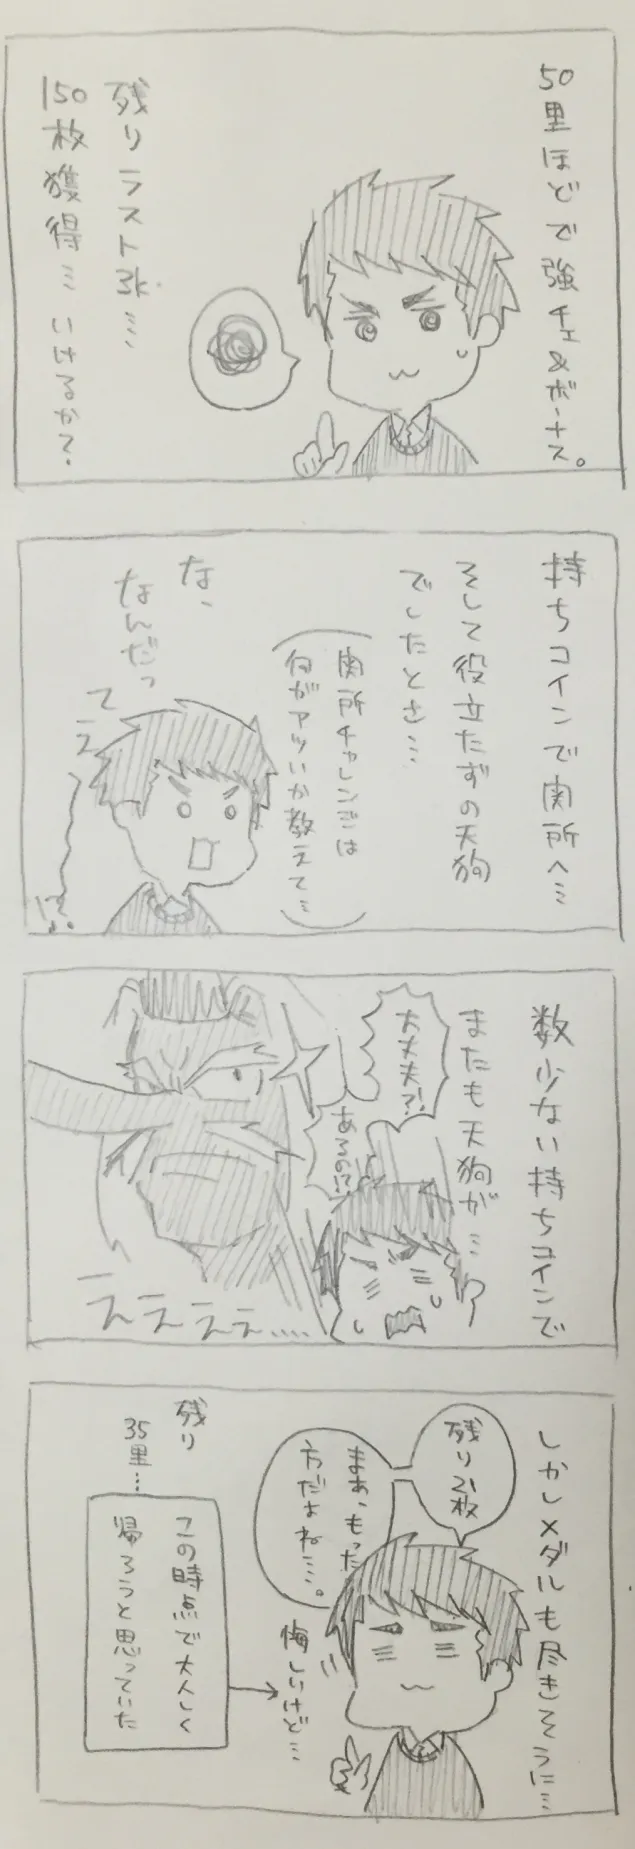 50里ほどで強チェ&ボーナス。
残りラスト3k…
150枚獲得…いけるか?
持ちコインで関所へ…
そして役立たずの天狗
でしたとさ…
(関所チャレンジは
何がアツいか教えて…)
な、
なんだっ
てえ
!?
数少ない持ちコインで
またも天狗が…
大丈夫?!
あるの!?
ええええ….
しかしメダルも尽きそうに…
残り21枚
まぁ、もった
方だよね…。
悔しいけど…
残り
35里…
この時点で大人しく
帰ろうと思っていた